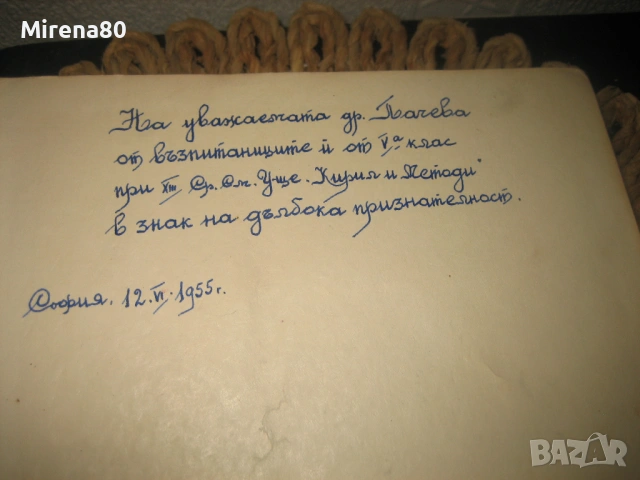 Mirena80
На уважаемата др. Пачева
от възпитаниците й от Vа клас
при XIII Ср. См. У-ще. „Кирил и Методи"
в знак на дълбока признателност.
София. 12.VI.1955г.
BAZAR